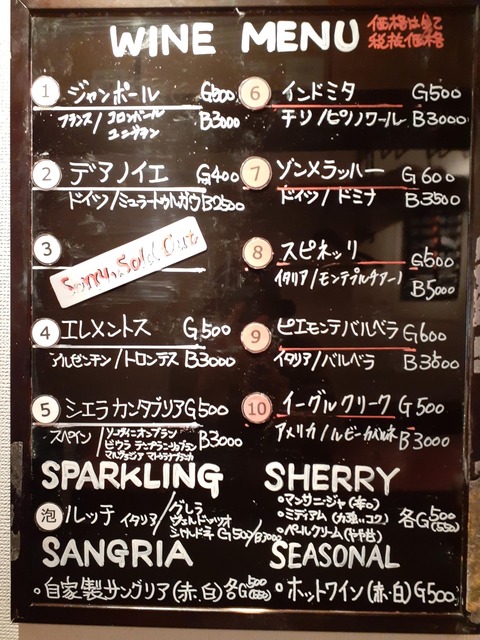 WINE MENU 価格は全て
税抜価格
① ジャンポール G500
フランス/コロンバール
ユニブラン B3000
② デアノイエ G400
ドイツ/ミュラートゥルガウ B2500
③ Sorry, Sold Out
④ エレメントス G500
アルゼンチン/トロンテス B3000
⑤ シエラカンタブリア G500
スペイン/ソーヴィニオンブラン
ビウラ テンプラニーリョブラン
マルヴァジア マトゥラナブランカ B3000
⑥ インドミタ G500
チリ/ピノノワール B3000
⑦ ゾンメラッハー G600
ドイツ/ドミナ B3500
⑧ スピネッリ G500
イタリア/モンテプルチアーノ
B5000
⑨ ピエモンテバルベラ G600
イタリア/バルベラ B3500
⑩ イーグルクリーク G500
アメリカ/ルビーカベルネ B3000
SPARKLING
泡 ルッチ イタリア/グレラ
ヴェルドゥッツオ
シャルドネ G500/B3000
SHERRY
・マンサニージャ(辛口)
・ミディアム(力強いコク) 各G500
・ペールクリーム(やや甘) (550)
SANGRIA
・自家製サングリア(赤、白) 各G500
SEASONAL
・ホットワイン(赤・白) G500